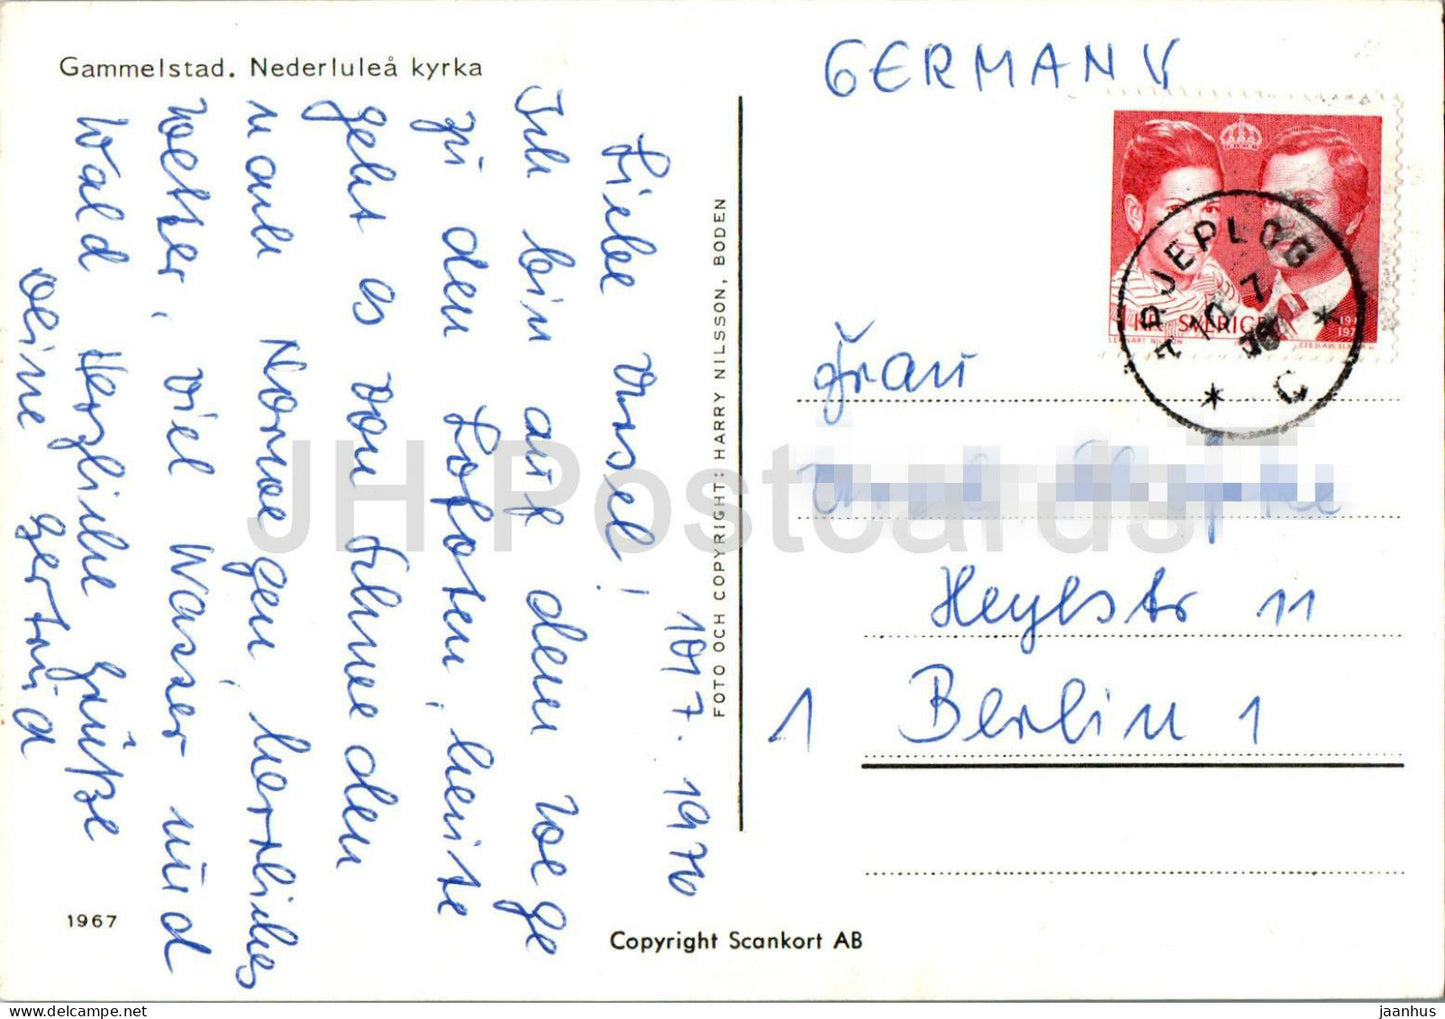 Gammelstad. Nederluleå kyrka
GERMANY
10/7. 1976
Liebe Ursel!
Ich bin auf dem Wege
zu den Lofoten, heute
geht es von Schweden
nach Norwegen, herrliches
Wetter, viel Wasser und
Wald Herzliche Grüße
Deine Gertrud
FOTO OCH COPYRIGHT: HARRY NILSSON, BODEN
ARJEPLOG
SVERIGE
Frau
Heylstr 11
1 Berlin 1
1967
Copyright Scankort AB
JH Postcards
jaanhus